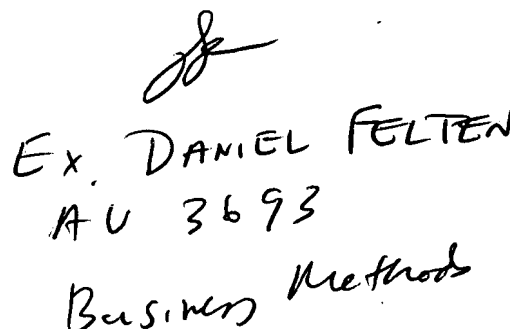 Ex. DANIEL FELTEN
AU 3693
Business Methods